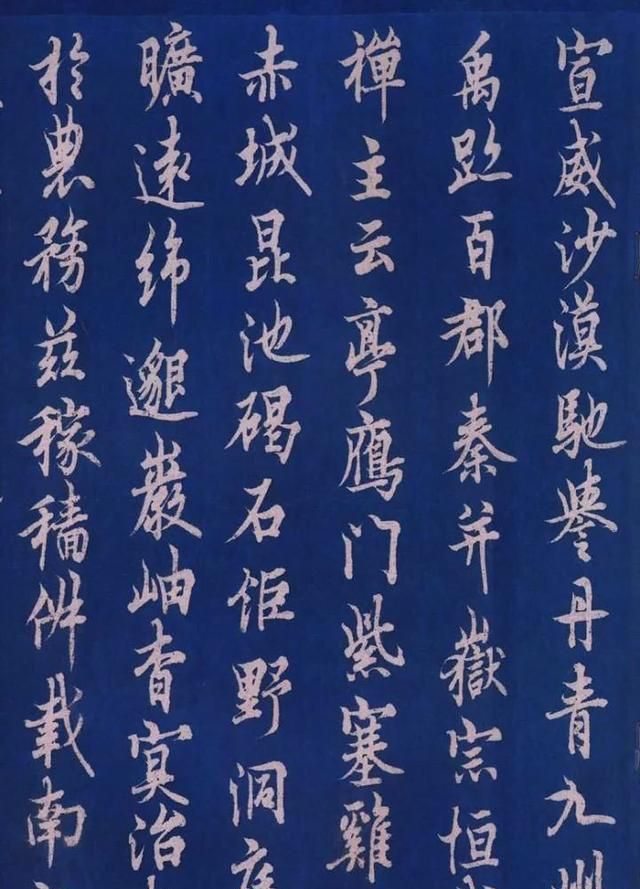 宣威沙漠馳譽丹青九州
禹跡百郡秦并嶽宗恒
禪主云亭鴈門紫塞雞
赤城昆池碣石鉅野洞庭
曠遠綿邈巖岫杳冥治
於農務茲稼穡俶載南